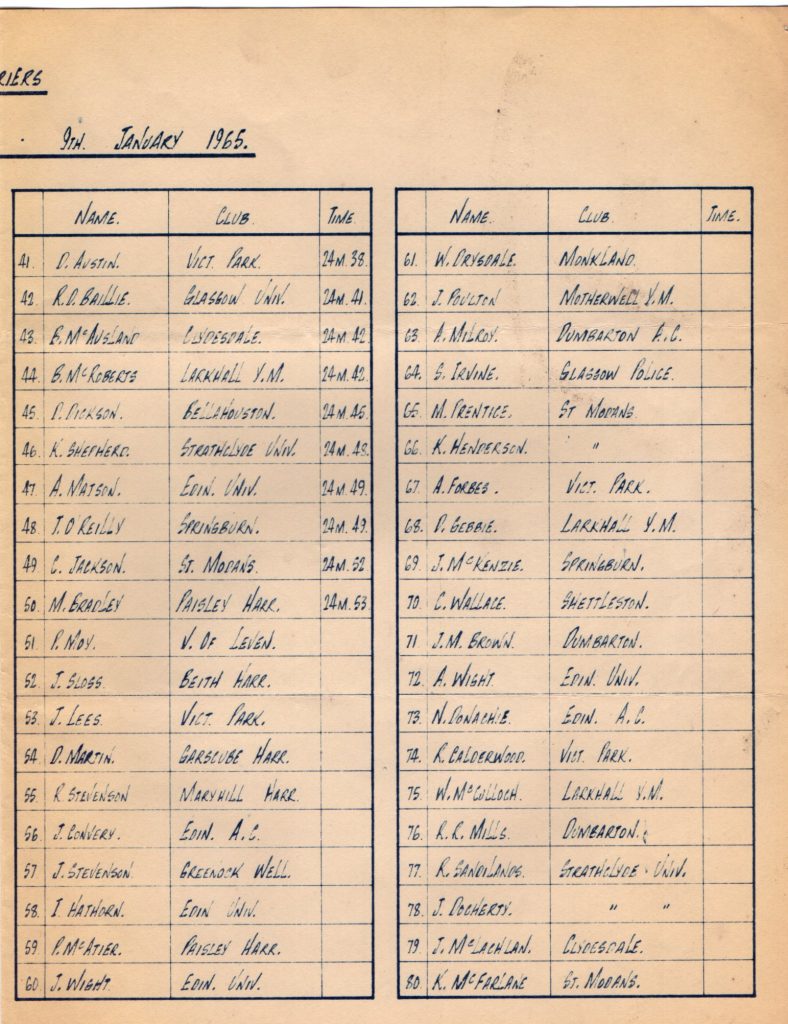 RIERS
9TH. JANUARY 1965.
NAME. CLUB. TIME
41. D. AUSTIN. VICT. PARK. 24M.38.
42. R.D. BAILLIE. GLASGOW UNIV. 24M.41.
43. B. McAUSLAND CLYDESDALE. 24M.42.
44. B. McROBERTS LARKHALL Y.M. 24M.42.
45. D. DICKSON. BELLAHOUSTON. 24M.45.
46. K. SHEPHERD. STRATHCLYDE UNIV. 24M.48.
47. A. MATSON. EDIN. UNIV. 24M.49.
48. T. O'REILLY SPRINGBURN. 24M.49.
49. C. JACKSON. ST. MODANS. 24M.52
50. M. BRADLEY PAISLEY HARR. 24M.53
51 P. MOY. V. OF LEVEN.
52 J. SLOSS BEITH HARR.
53. J. LEES. VICT. PARK.
54 D. MARTIN. GARSCUBE HARR.
55 R STEVENSON MARYHILL HARR.
56 J. CONVERY. EDIN. A.C.
57 J. STEVENSON GREENOCK WELL.
58. I. HATHORN. EDIN UNIV.
59 P. McATIER. PAISLEY HARR.
60 J. WIGHT. EDIN. UNIV.
NAME. CLUB. TIME.
61. W. DRYSDALE. MONKLAND.
62 J. POULTON MOTHERWELL Y.M.
63. A. MILROY. DUMBARTON A.C.
64. S. IRVINE. GLASGOW POLICE.
65 M. PRENTICE. ST MODANS
66. K. HENDERSON. "
67. A. FORBES. VICT. PARK.
68. D. GEBBIE. LARKHALL Y.M.
69 J. McKENZIE. SPRINGBURN.
70. C. WALLACE. SHETTLESTON.
71 J.M. BROWN. DUMBARTON.
72 A. WIGHT EDIN. UNIV.
73. N. DONACHIE. EDIN. A.C.
74. R. CALDERWOOD. VICT. PARK.
75 W. McCULLOCH. LARKHALL Y.M.
76. R.R. MILLS. DUMBARTON.
77. R. SANDILANDS. STRATHCLYDE UNIV.
78 J. DOCHERTY. " "
79 J. McLACHLAN. CLYDESDALE.
80. K. McFARLANE ST. MODANS.